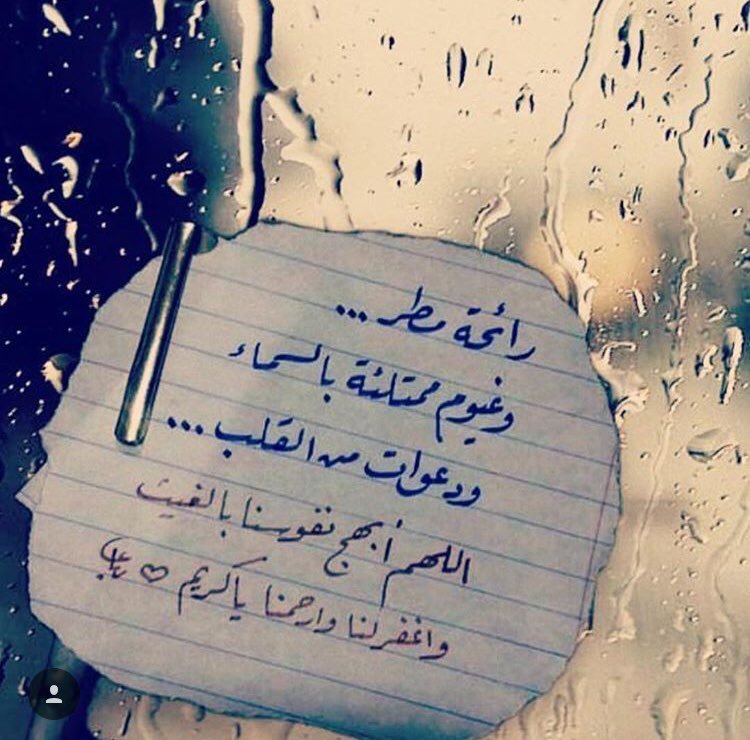 رائحة مطر...
وغيوم ممتلئة بالسماء
ودعوات من القلب...
اللهم أبهج نفوسنا بالغيث
واغفر لنا وارحمنا ياكريم ♡